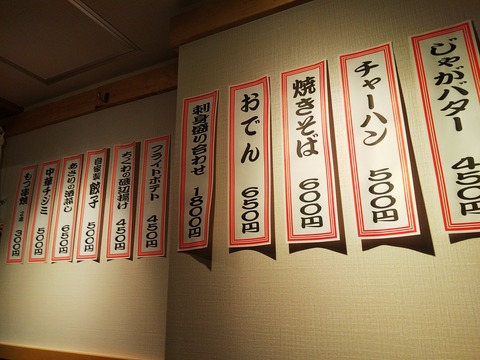 じゃがバター 450円
チャーハン 500円
焼きそば 600円
おでん 650円
刺身盛り合わせ 1800円
フライドポテト 450円
ちくわの磯辺揚げ 450円
自家製 餃子 500円
あさりの酒蒸し 650円
中華チヂミ 500円
もつ串焼 300円